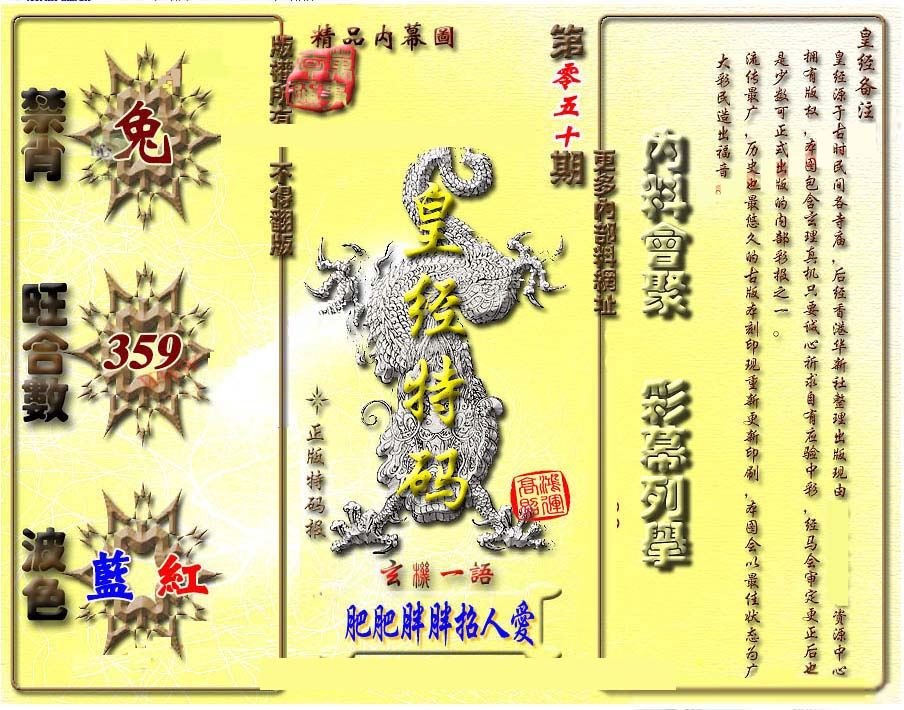 精品内幕圖
第零五十期
版權所有
不得翻版
更多内部料網址
禁肖
兔
旺合數
359
波色
藍 紅
皇经特码
正版特码报
鴻運高照
玄機一語
肥肥胖胖招人愛
内料會聚
彩幕列學
皇经备注
皇经源于古时民间各寺庙，后经香港华新社整理出版现由 资源中心
拥有版权，本图包含玄理真机只要诚心祈求自有应验中彩，经马会审定更正后也
是少数可正式出版的内部彩报之一。
流传最广，历史也最悠久的古版本刻印现重新更新印刷，本图会以最佳状态为广
大彩民造出福音